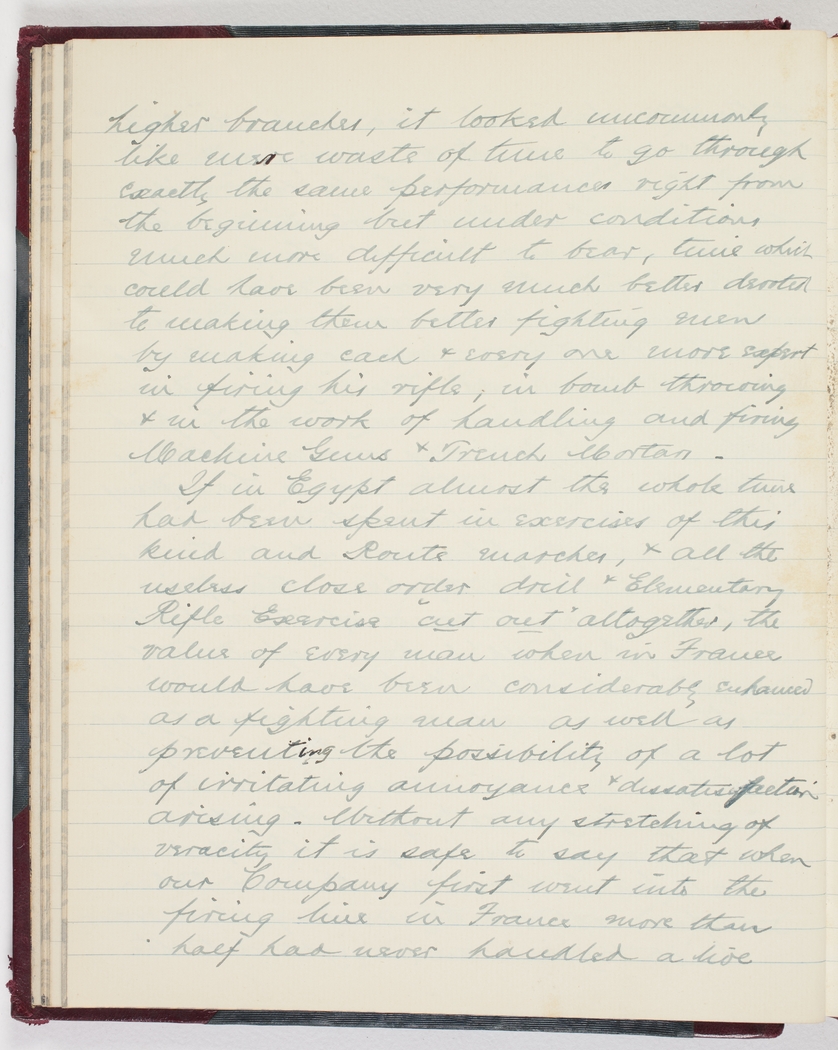 higher branches, it looked uncommonly
like mere waste of time to go through
exactly the same performances right from
the beginning but under conditions
much more difficult to bear, time which
could have been very much better devoted
to making them better fighting men
by making each & every one more expert
in firing his rifle, in bomb throwing
& in the work of handling and firing
Machine Guns & Trench Mortars -
If in Egypt almost the whole time
had been spent in exercises of this
kind and Route marches, & all the
useless close order drill & Elementary
Rifle Exercise "cut out" altogether, the
value of every man when in France
would have been considerably enhanced
as a fighting man as well as
preventing the possibility of a lot
of irritating annoyance & dissatisfaction
arising - Without any stretching of
veracity it is safe to say that when
our Company first went into the
firing line in France more than
half had never handled a live